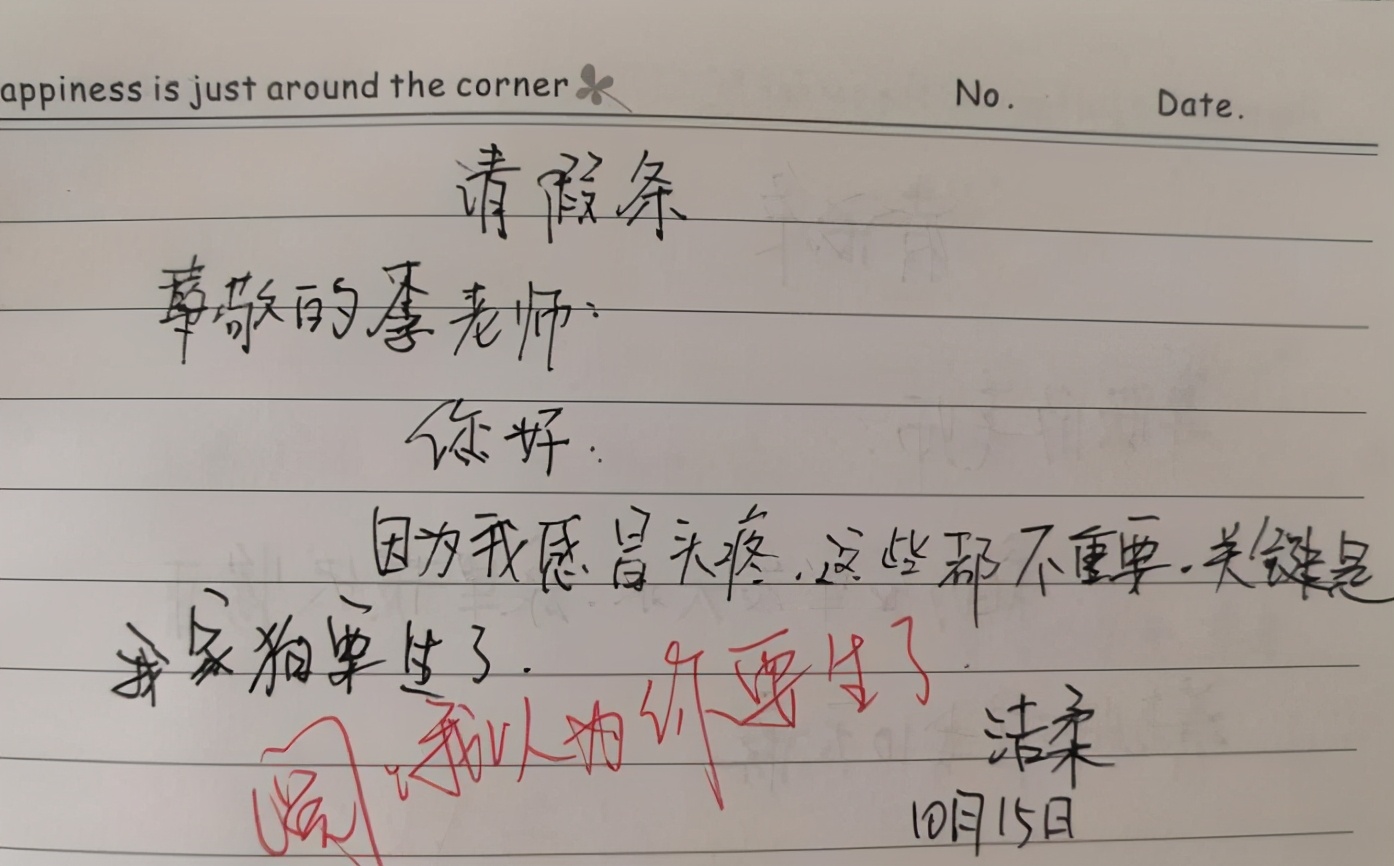 appiness is just around the corner
No. Date.
请假条
尊敬的李老师:
你好:
因为我感冒头疼.这些都不重要.关键是
我家狗要生了.
我以为你要生了
洁柔
10月15日